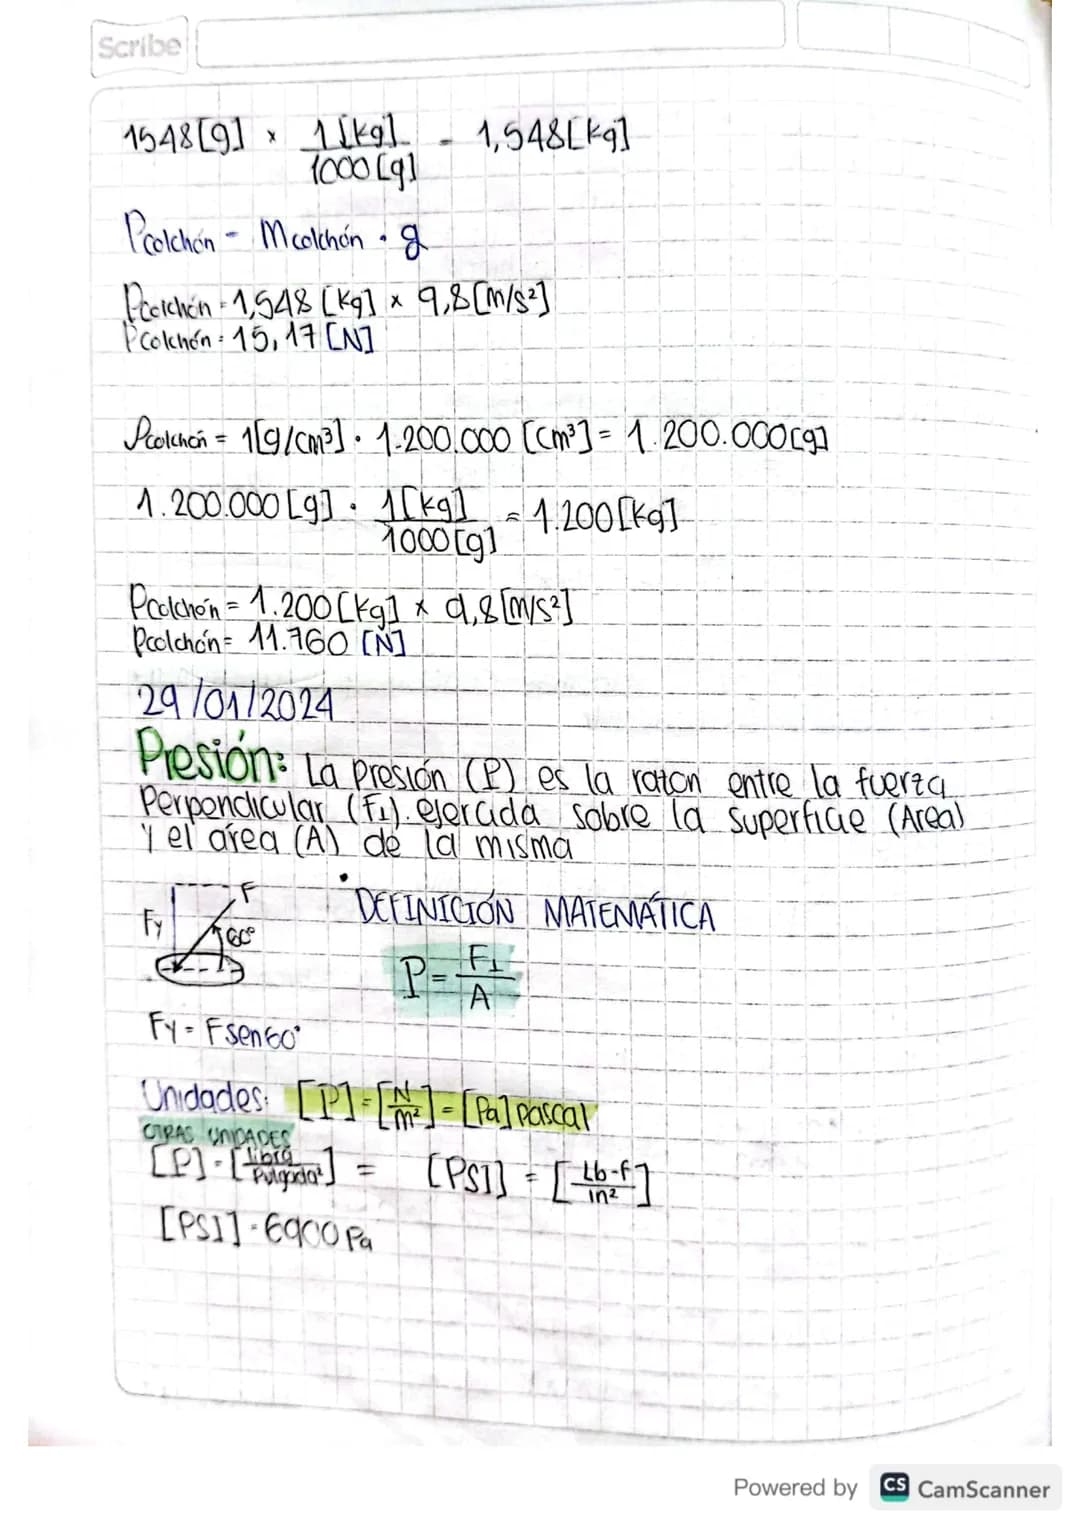 Scribe
1548[g] × 1[kg]/1000[g] = 1,548[kg]
Pcolchón = Mcolchón · g
Pcolchón = 1,548 [kg] × 9,8[m/s²]
Pcolchón = 15,17 [N]
Pcolchón = 1[g/cm³] · 1.200.000 [cm³] = 1.200.000[g]
1.200.000 [g] · 1[kg]/1000[g] = 1.200[kg]
Pcolchón = 1.200[kg] × 9,8[m/s²]
Pcolchón = 11.760 [N]
29/01/2024
Presión: La presión (P) es la razon entre la fuerza
Perpendicular (F⊥). ejercida sobre la superficie (Area)
y el área (A) de la misma
F
Fy 60°
• DEFINICIÓN MATEMÁTICA
P = F⊥/A
Fy = F sen60°
Unidades: [P] = [N/m²] = [Pa] pascal
OTRAS UNIDADES
[P] = [libra/Pulgada²] = [PSI] = [Lb-f/in²]
[PSI] = 6900 Pa
Powered by CS CamScanner